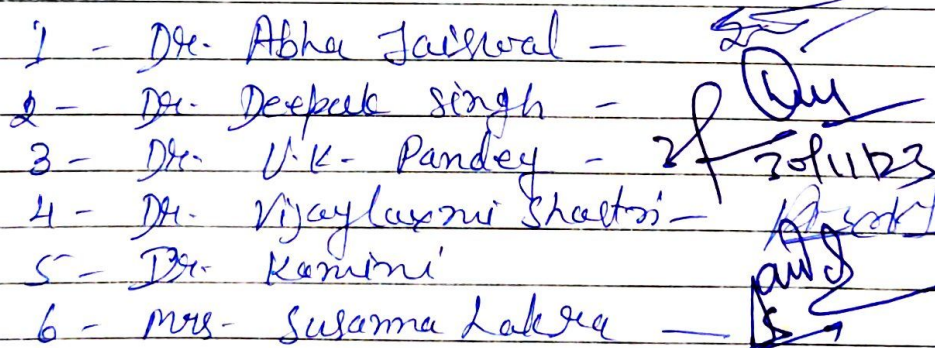 1 - Dr. Abha Jaiswal -
2 - Dr. Deepak Singh -
3 - Dr. V.K. Pandey - 30/11/23
4 - Dr. Vijaylaxmi Shastri -
5 - Dr. Kamini
6 - Mrs. Susanna Lakra -